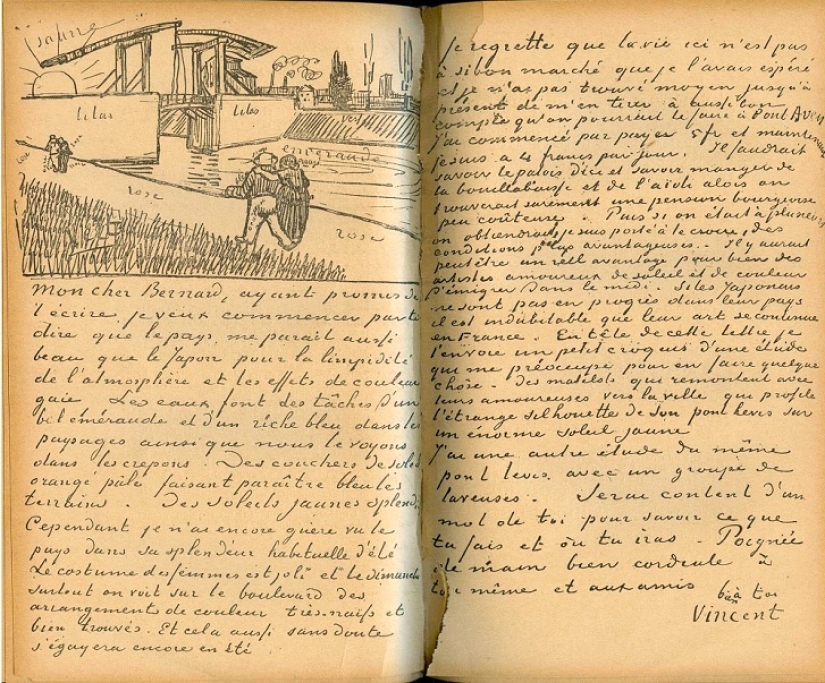 jaune
lilas
lilas
vert
emeraude
rose
rose
rose
mon cher Bernard, ayant promis de
t'écrire je veux commencer par te
dire que le pays me parait aussi
beau que le Japon pour la limpidité
de l'atmosphère et les effets de couleur
gaie Les eaux font des tâches d'un
bel éméraude et d'un riche bleu dans les
paysages ainsi que nous le voyons
dans les crepons. Des couchers de soleil
orangé pâle faisant paraître bleu les
terrains. Des soleils jaunes splendides
Cependant je n'ai encore guère vu le
pays dans sa splendeur habituelle d'été
Le costume des femmes est joli et le dimanche
surtout on voit sur le boulevard des
arrangement de couleur très naifs et
bien trouvés. Et cela aussi sans doute
s'égayera encore en été
je regrette que la vie ici n'est pas
à si bon marché que je l'avais espéré
et je n'ai pas trouvé moyen jusqu'à
présent de m'en tirer à aussi bon
compte qu'on pourrait le faire à Pont Aven
J'ai commencé par payer 5 fr et maintenant
je suis a 4 francs par jour. Il faudrait
savoir le patois d'ici et savoir manger de
la bouillabaisse et de l'aïoli alors on
trouverait surement une pension bourgeoise
peu coûteuse. Puis si on était à plusieurs
on obtiendrait, je suis porté à le croire, des
conditions plus avantageuses.. Il y aurait
peut être un réell avantage pour bien des
artistes amoureux de soleil et de couleur
d'émigrer dans le midi. Si les Japonais
ne sont pas en progrès dans leur pays
il est indubitable que leur art se continue
en France. En tête de cette lettre je
t'envoie un petit croquis d'une étude
qui me préoccupe pour en faire quelque
chose - des matelots qui remontent avec
leurs amoureuses vers la ville qui profile
l'étrange silhouette de son pont levis sur
un énorme soleil jaune
J'ai une autre étude du même
pont levis avec un groupe de
laveuses. Serai content d'un
mot de toi pour savoir ce que
tu fais et où tu iras - Poignée
de main bien cordiale à
toi même et aux amis
bien à toi
Vincent